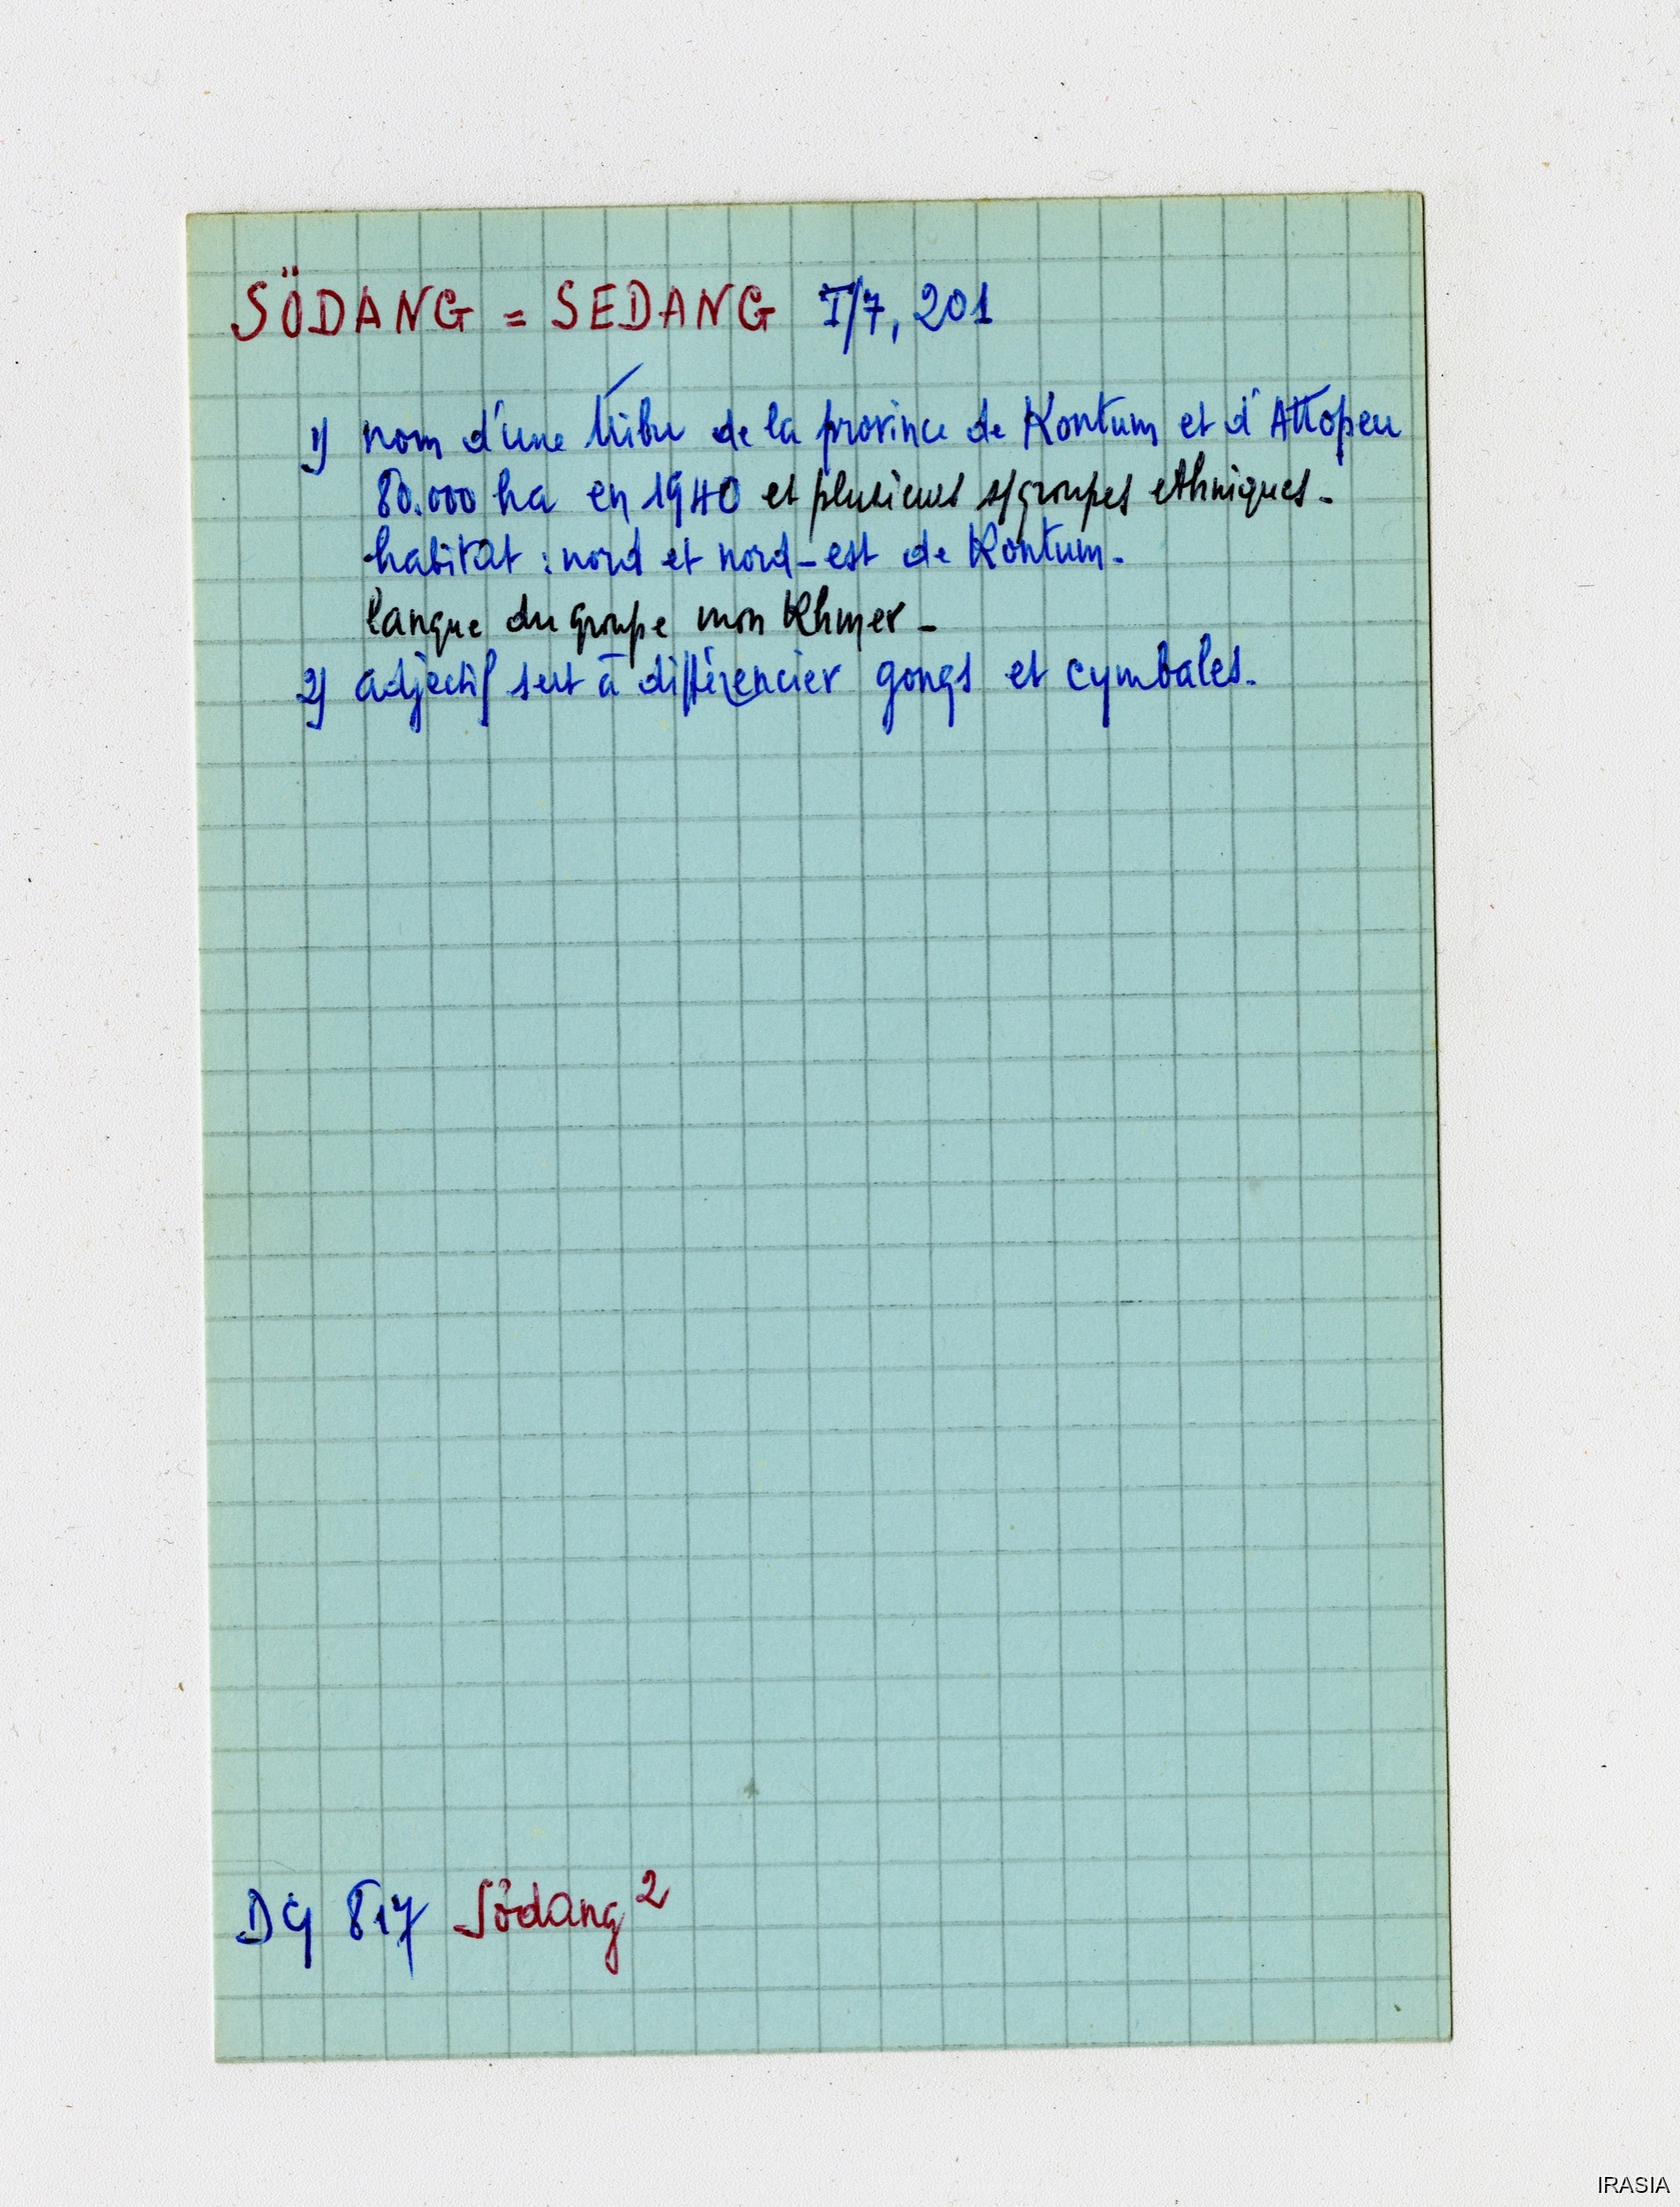 SÖDANG = SEDANG I/7, 201
1) nom d'une tribu de la province de Kontum et d'Attopeu
80.000 ha en 1940 et plusieurs s/groupes ethniques -
habitat : nord et nord-est de Kontum -
langue du groupe mon Khmer -
2) adjectif sert à différencier gongs et cymbales.
DG 817 Södang 2
IRASIA